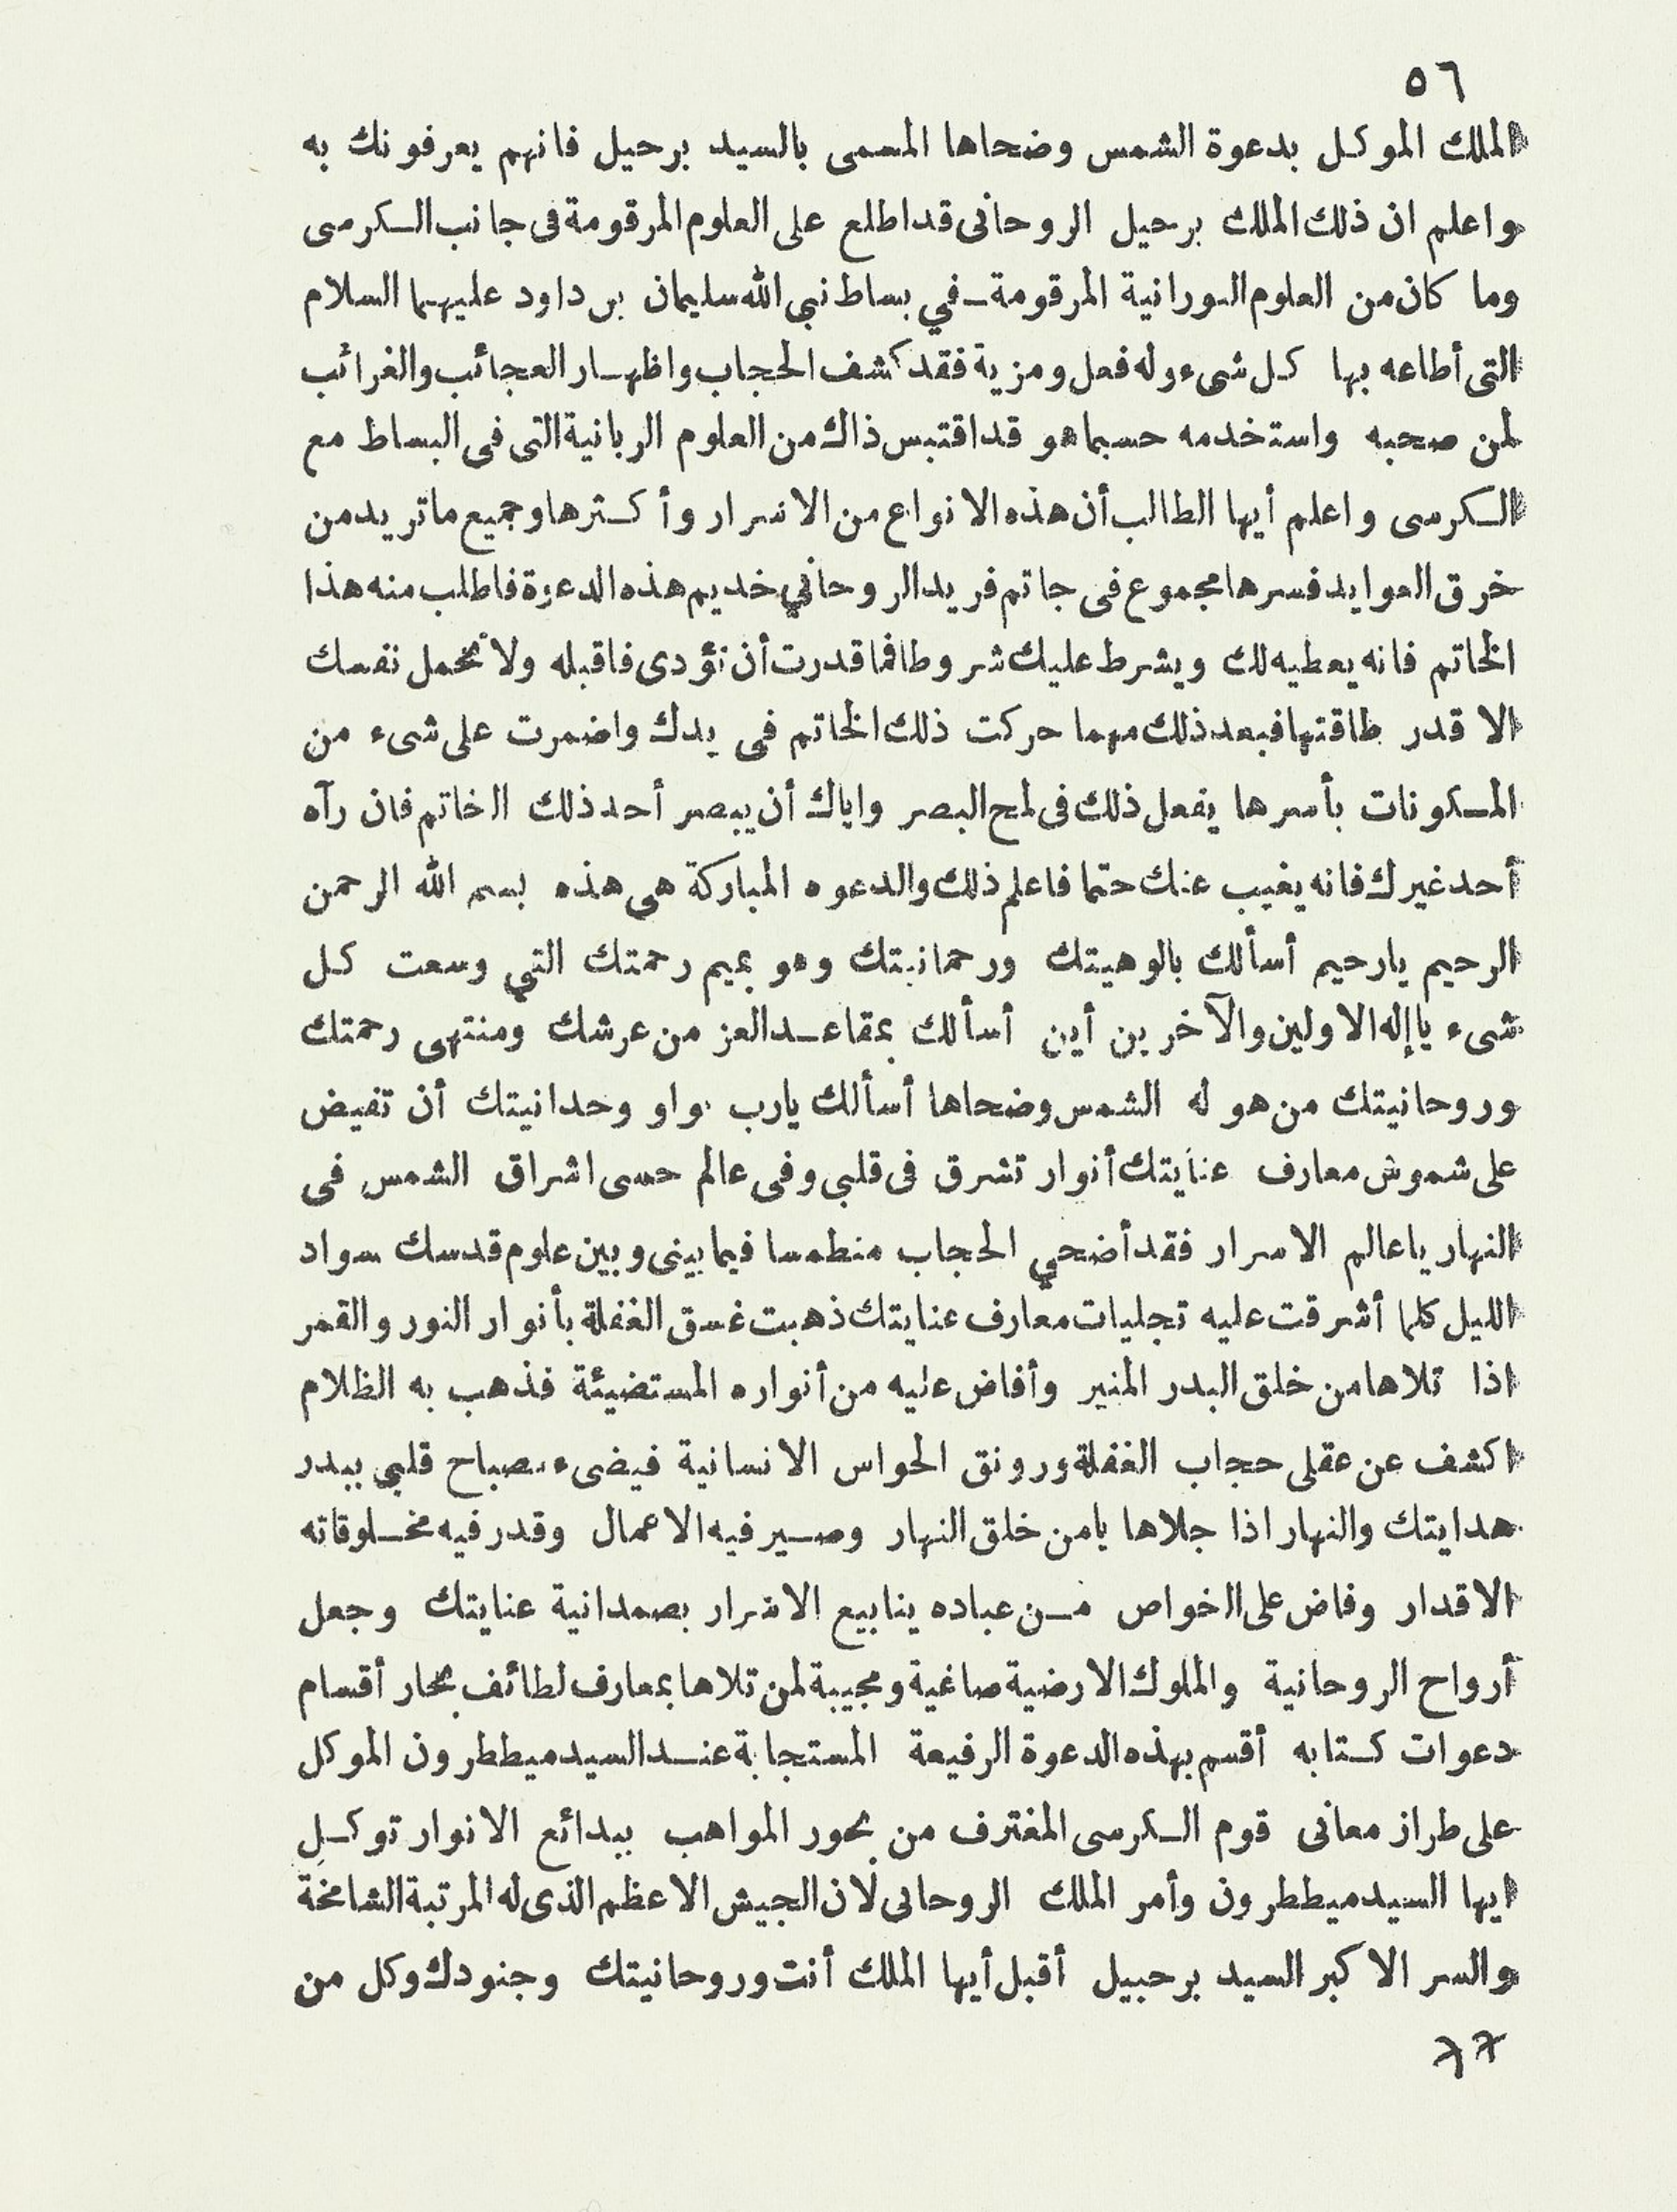 ٥٦
الملك الموكل بدعوة الشمس وضحاها المسمى بالسيد برحيل فانهم يعرفونك به
واعلم ان ذلك الملك برحيل الروحانى قد اطلع على العلوم المرقومة فى جانب الكرسى
وما كان من العلوم النورانية المرقومة في بساط نبي الله سليمان بن داود عليهما السلام
التى أطاعه بها كل شىء وله فعل ومزية فقد كشف الحجاب واظهار العجائب والغرائب
لمن صحبه واستخدمه حسبما هو قد اقتبس ذاك من العلوم الربانية التى فى البساط مع
الكرسى واعلم أيها الطالب أن هذه الانواع من الاسرار وأكثرها وجميع ماتريد من
خرق العوايد فسرها مجموع فى جاتم فريد الروحاني خديم هذه الدعوة فاطلب منه هذا
الخاتم فانه يعطيه لك ويشرط عليك شروطا فما قدرت أن تؤدى فاقبله ولا تحمل نفسك
الا قدر طاقتها فبعد ذلك مهما حركت ذلك الخاتم فى يدك واضمرت على شىء من
المكونات بأسرها يفعل ذلك فى لمح البصر واياك أن يبصر أحد ذلك الخاتم فان رآه
أحد غيرك فانه يغيب عنك حتما فاعلم ذلك والدعوه المباركة هى هذه بسم الله الرحمن
الرحيم يارحيم أسألك بالوهيتك ورحمانيتك وهو بميم رحمتك التي وسعت كل
شىء ياإله الاولين والآخرين أين أسألك بمقاعد العز من عرشك ومنتهى رحمتك
وروحانيتك من هو له الشمس وضحاها أسألك يارب بواو وحدانيتك أن تفيض
على شموش معارف عنايتك أنوار تشرق فى قلبي وفى عالم حسى اشراق الشمس فى
النهار ياعالم الاسرار فقد أضحي الحجاب منطمسا فيما بينى وبين علوم قدسك سواد
الليل كلما أشرقت عليه تجليات معارف عنايتك ذهبت غسق الغفلة بأنوار النور والقمر
اذا تلاها من خلق البدر المنير وأفاض عليه من أنواره المستضيئة فذهب به الظلام
اكشف عن عقلى حجاب الغفلة ورونق الحواس الانسانية فيضىء مصباح قلبي ببدر
هدايتك والنهار اذا جلاها يامن خلق النهار وصير فيه الاعمال وقدر فيه مخلوقاته
الاقدار وفاض على الخواص من عباده ينابيع الاسرار بصمدانية عنايتك وجعل
أرواح الروحانية والملوك الارضية صاغية ومجيبة لمن تلاها بمعارف لطائف بحار أقسام
دعوات كتابه أقسم بهذه الدعوة الرفيعة المستجابة عند السيد ميططرون الموكل
على طراز معانى قوم الكرسى المغترف من بحور المواهب ببدائع الانوار توكل
ايها السيد ميططرون وأمر الملك الروحانى لان الجيش الاعظم الذى له المرتبة الشامخة
والسر الاكبر السيد برحبيل أقبل أيها الملك أنت وروحانيتك وجنودك وكل من